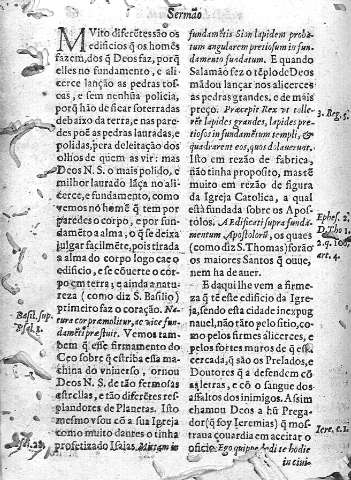 Sermão
MVito diferẽtes são os
edificios q̃ os homẽs
fazem, dos q̃ Deos faz, porq̃
elles no fundamento, e ali-
cerce lanção as pedras tos-
cas, e sem nenhũa policia,
porq̃ hão de ficar soterradas
debaixo da terra, e nas pare-
des poẽ as pedras lauradas, e
polidas, pera deleitação dos
olhos de quem as vir: mas
Deos N. S. o mais polido, e
milhor laurado lãça no ali-
cerce, e fundamento, como
vemos no homẽ q̃ tem por
paredes o corpo, e por fundã-
mẽto a alma, o q̃ se deixa
julgar facilmẽte, pois tirada
a alma do corpo logo cae o
edificio, e se cõuerte o cor-
po em terra, e ainda a natu-
reza (como diz S. Basilio)
primeiro faz o coração. Na-
tura cor præmolitur, ac vice fun-
damẽti præstruit. Vemos tam-
bem q̃ esse firmamento do
Ceo sobre q̃ estriba essa ma-
china do vniuerso, ornou
Deos N. S. de tão fermosas
estrellas, e tão diferẽtes res-
plandores de Planetas. Isto
mesmo vsou cõ a sua Igreja
como muito dantes o tinha
profetizado Isaias. Mittam in
Basil. sup.
Psal. 1.
Isai. 28.
fundamẽtis Sion lapidem proba-
tum angularem pretiosum in fun-
damento fundatum. E quando
Salamão fez o tẽplo de Deos
mãdou lançar nos alicerces
as pedras grandes, e de mais
preço. Præcepit Rex vt tolle-
rẽt lapides grandes, lapides pre-
tiosos in fundamẽtum templi, &
quadrarent eos, quos dolauerunt.
Isto em rezão de fabrica,
não tinha proposito, mas tẽ
muito em rezão de figura
da Igreja Catolica, a qual
està fundada sobre os Apos-
tolos. Aedificati supra funda-
mentum Apostolorũ, os quaes
(como diz S. Thomas) forão
os maiores Santos q̃ oue,
nem ha de auer.
E daqui lhe vem a firme-
za q̃ tẽ este edificio da Igre-
ja, sendo esta cidade inexpug
nauel, não tãto pelo sitio, co-
mo pelos firmes alicerces, e
pelos fortes muros de q̃ està
cercada, q̃ são os Prelados, e
Doutores q̃ a defendem cõ
as letras, e cõ o sangue dos
assaltos dos inimigos. Assim
chamou Deos a hũ Prega-
dor (q̃ foy Ieremias) q̃ mos-
traua çouardia em aceitar o
oficio. Ego quippe dedi te hodie
in ciui-
3. Reg. 5.
Ephes. 2.
D. Tho. 1.
2. q. 106.
art. 4.
Iere. c. 1.